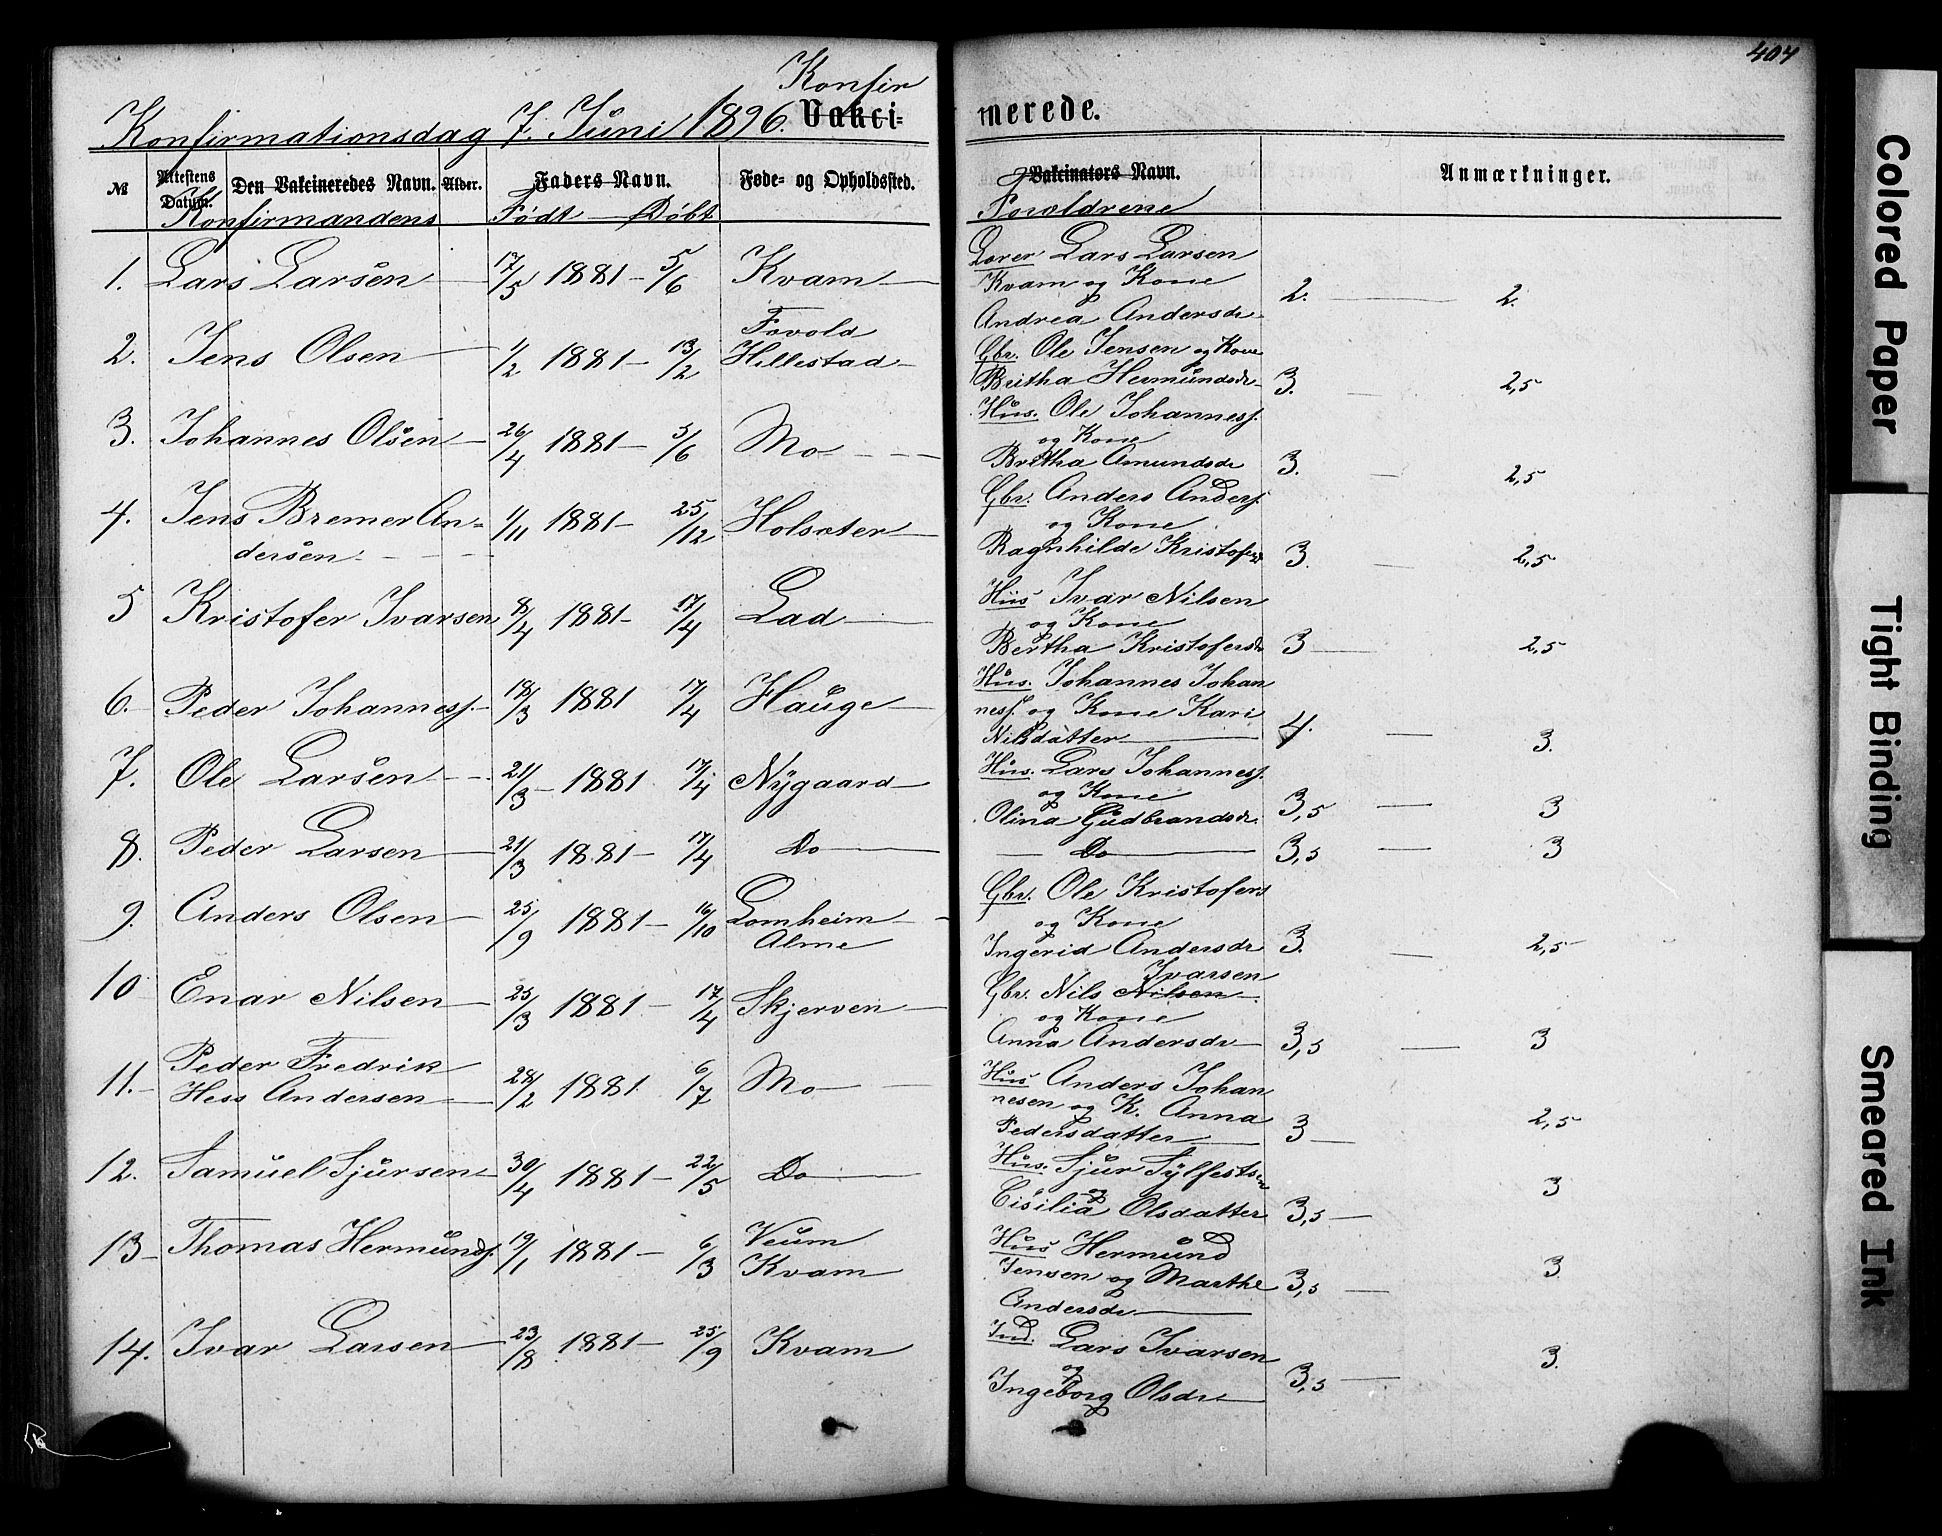 404
Konfir
Konfirmationsdag 7. Juni 1896. Vakci=
merede.
№ Attestens Datum. Den Vakcineredes Navn. Alder. Faders Navn. Føde= og Opholdssted. Vakcinators Navn. Anmærkninger.
Konfirmandens Født Døbt Foroldrene
1. Lars Larsen 17/5 1881 - 5/6 Kvam
Lærer Lars Larsen
Kvam og Kone
Andrea Andersdr 2. 2.
2. Jens Olsen 1/2 1881 - 13/2 Fovold
Hillestad
Gbr. Ole Jensen og Kone
Britha Hermundsdr 3. 2,5
3. Johannes Olsen 26/4 1881 - 5/6 Mo
Hus. Ole Johanness.
og Kone
Britha Amundsdr 3. 2,5
4. Jens Bremer An=
dersen 1/11 1881 - 25/12 Holsæter
Gbr. Anders Anders.
og Kone
Ragnhilde Kristofersdr 3. 2,5
5 Kristofer Ivarsen 8/4 1881 - 17/4 Lad
Hus Ivar Nilsen
og Kone
Bertha Kristofersdr 3 2,5
6. Peder Johanness. 18/3 1881 17/4 Hauge
Hus. Johannes Johan
ness. og Kone Kari
Nilsdatter 4. 3.
7. Ole Larsen 21/3 - 1881 17/4 Nygaard
Hus. Lars Johanness.
og Kone
Olina Gudbrandsdr. 3,5 3
8. Peder Larsen 21/3 1881 - 17/4 Do
Do 3,5 3
9. Anders Olsen 25/9 1881 - 16/10 Lomheim
Alme
Gbr. Ole Kristofers
og Kone
Ingerid Andersdr 3. 2,5
10 Enar Nilsen 25/3 1881 - 17/4 Skjerven
Ivarsen
Gbr. Nils Nilsen
og Kone
Anna Andersdr 3,5 3
11. Peder Fredrik
Hess Andersen 28/2 1881 6/7 Mo
Hus Anders Johan
nesen og K. Anna
Pedersdatter 3 2,5
12. Samuel Sjursen 30/4 1881 - 22/5 Do
Hus. Sjur Sylfestsen
og
Cisilia Olsdatter 3,5 3
13 Thomas Hermunds. 19/1 1881 - 6/3 Veum
Kvam
Hus Hermund
Jensen og Marthe
Andersdr 3,5 3
14. Ivar Larsen 23/8 1881 - 25/9 Kvam
Ind. Lars Ivarsen
og
Ingeborg Olsdr 3,5 3.
Colored Paper
Tight Binding
Smeared Ink